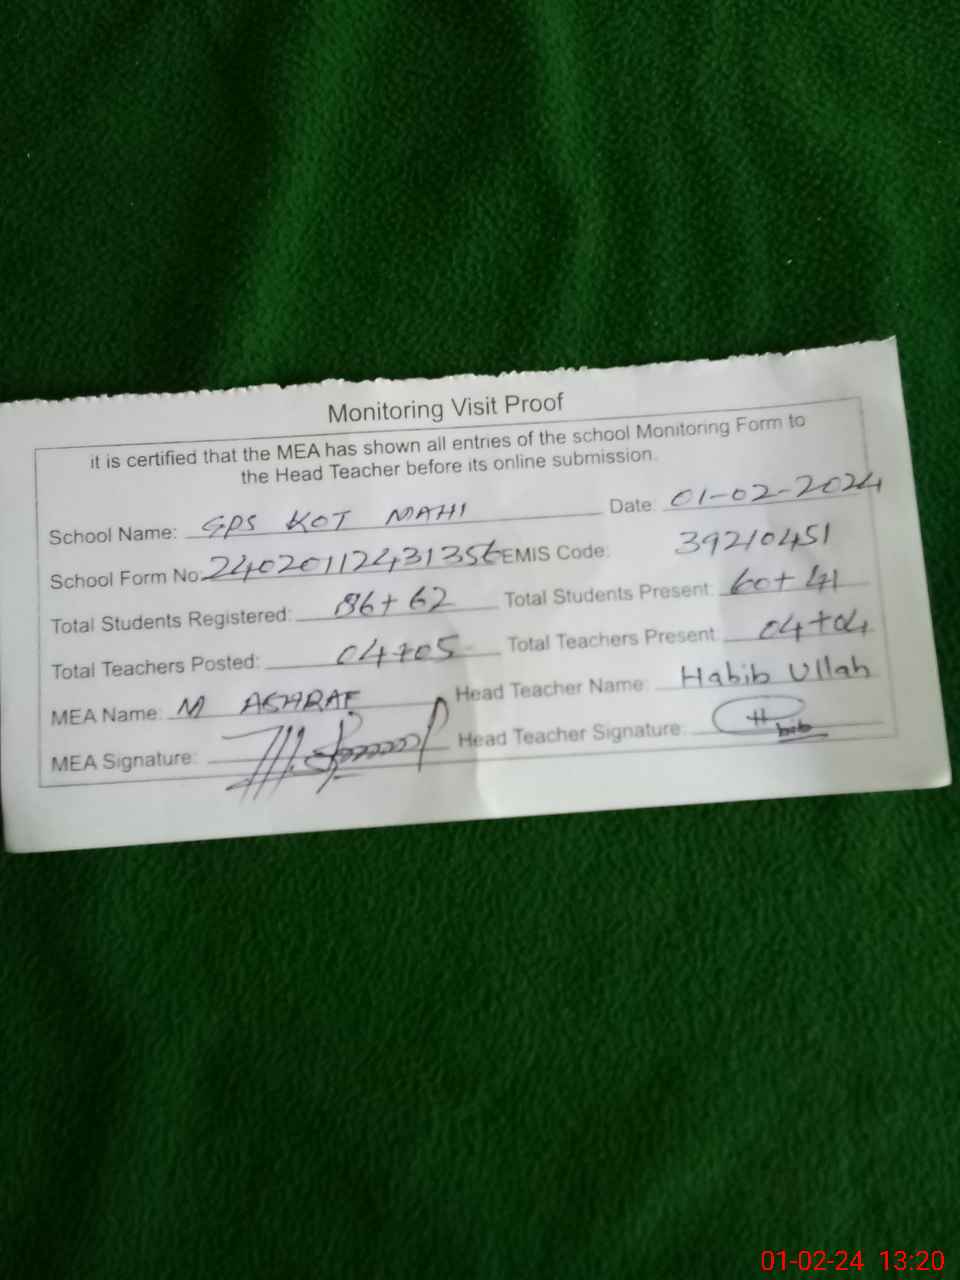 Monitoring Visit Proof
it is certified that the MEA has shown all entries of the school Monitoring Form to
the Head Teacher before its online submission.
School Name: GPS KOT MAHI Date: 01-02-2024
School Form No: 24020112431356 EMIS Code: 39210451
Total Students Registered: 86+62 Total Students Present: 60+41
Total Teachers Posted: 04+05 Total Teachers Present: 04+04
MEA Name: M ASHRAF Head Teacher Name: Habib Ullah
MEA Signature: Head Teacher Signature:
01-02-24 13:20